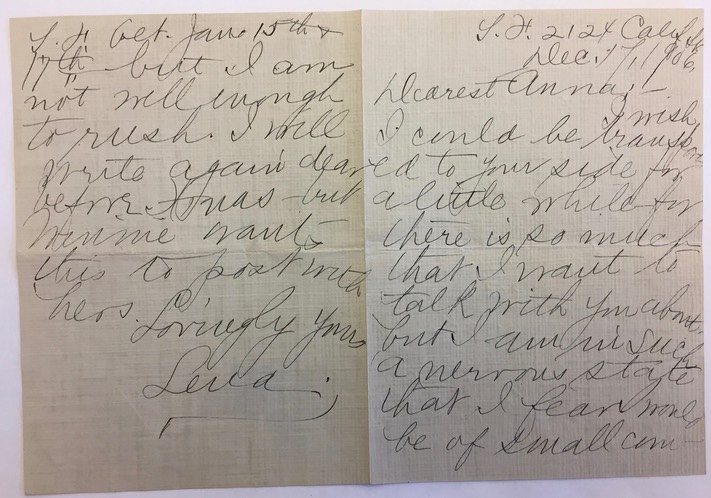 S. F. 2124 Cal. St.
Dec. 17, 1906.
Dearest Anna; -
I wish
I could be transport
ed to your side for
a little while for
there is so much
that I want to
talk with you about,
but I am in such
a nervous state
that I fear would
be of small com-
S. F. bet. Jan. 15th &
17th but I am
not well enough
to rush. I will
write again dear
before Xmas - but
Minnie wants
this to post with
hers. Lovingly yours
Lena.